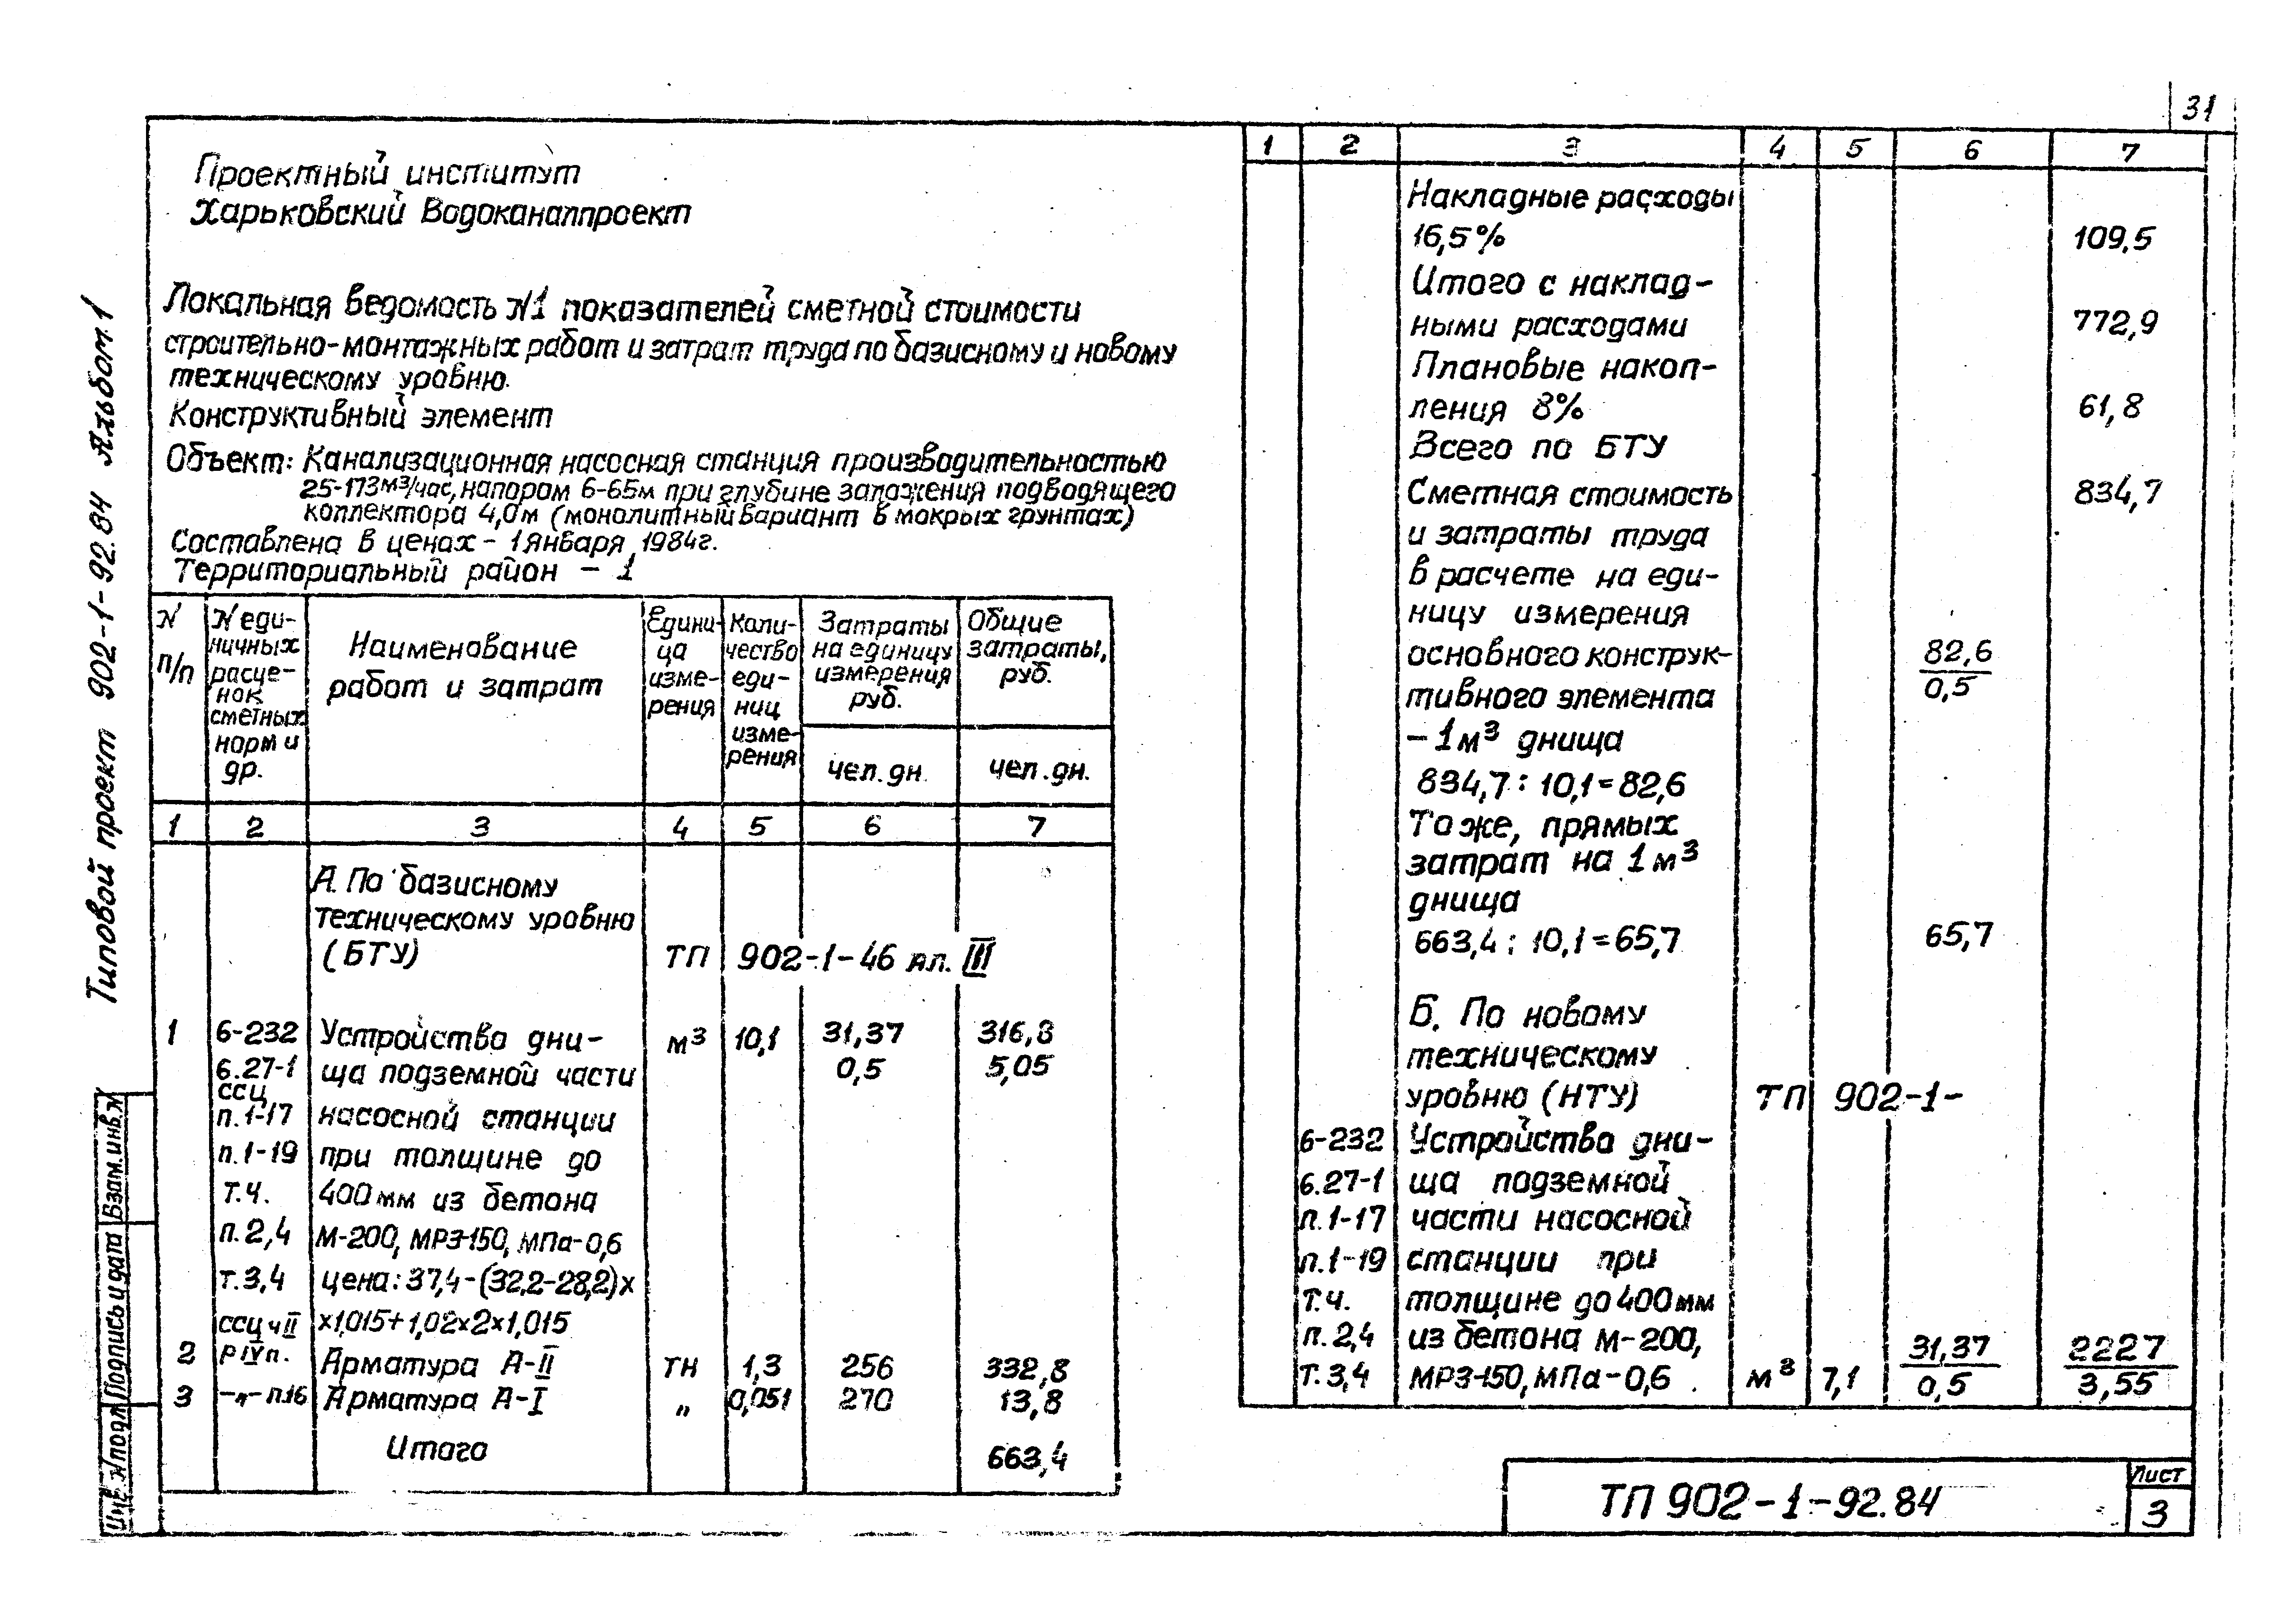 31
Типовой проект 902-1-92.84 Альбом 1
Проектный институт
Харьковский Водоканалпроект
Локальная ведомость №1 показателей сметной стоимости
строительно-монтажных работ и затрат труда по базисному и новому
техническому уровню.
Конструктивный элемент
Объект: Канализационная насосная станция производительностью
25-173м³/час, напором 6-65м при глубине заложения подводящего
коллектора 4,0м (монолитный вариант в мокрых грунтах)
Составлена в ценах - 1 января 1984г.
Территориальный район - 1
N п/п | N единичных расценок сметных норм и др. | Наименование работ и затрат | Единица измерения | Количество единиц измерения | Затраты на единицу измерения руб. | Общие затраты, руб.
чел. дн. чел. дн.
1 2 3 4 5 6 7
А. По базисному
техническому уровню
(БТУ) ТП 902-1-46 ал. III
1 6-232 Устройство дни- м³ 10,1 31,37 316,8
6.27-1 ща подземной части 0,5 5,05
ссц
п.1-17 насосной станции
п.1-19 при толщине до
т.ч. 400мм из бетона
п.2,4 М-200, МРЗ-150, МПа-0,6
т.3,4 цена: 37,4-(32,2-28,2)х
ссц ч II х1,015+1,02х2х1,015
2 р IV п. Арматура А-II тн 1,3 256 332,8
3 -"- п.16 Арматура А-I " 0,051 270 13,8
Итого 663,4
1 2 3 4 5 6 7
Накладные расходы
16,5% 109,5
Итого с наклад-
ными расходами 772,9
Плановые накоп-
ления 8% 61,8
Всего по БТУ
Сметная стоимость 834,7
и затраты труда
в расчете на еди-
ницу измерения
основного конструк- 82,6
тивного элемента 0,5
- 1м³ днища
834,7 : 10,1=82,6
То же, прямых
затрат на 1м³
днища
663,4 : 10,1=65,7 65,7
Б. По новому
техническому
уровню (НТУ) ТП 902-1-
6-232 Устройство дни-
6.27-1 ща подземной
п.1-17 части насосной
п.1-19 станции при
т.ч. толщине до 400мм
п.2,4 из бетона М-200, 31,37 2227
т.3,4 МРЗ-150, МПа-0,6 . м³ 7,1 0,5 3,55
Взам.инв.N
Подпись и дата
Инв. N подл
ТП 902-1-92.84
Лист
3